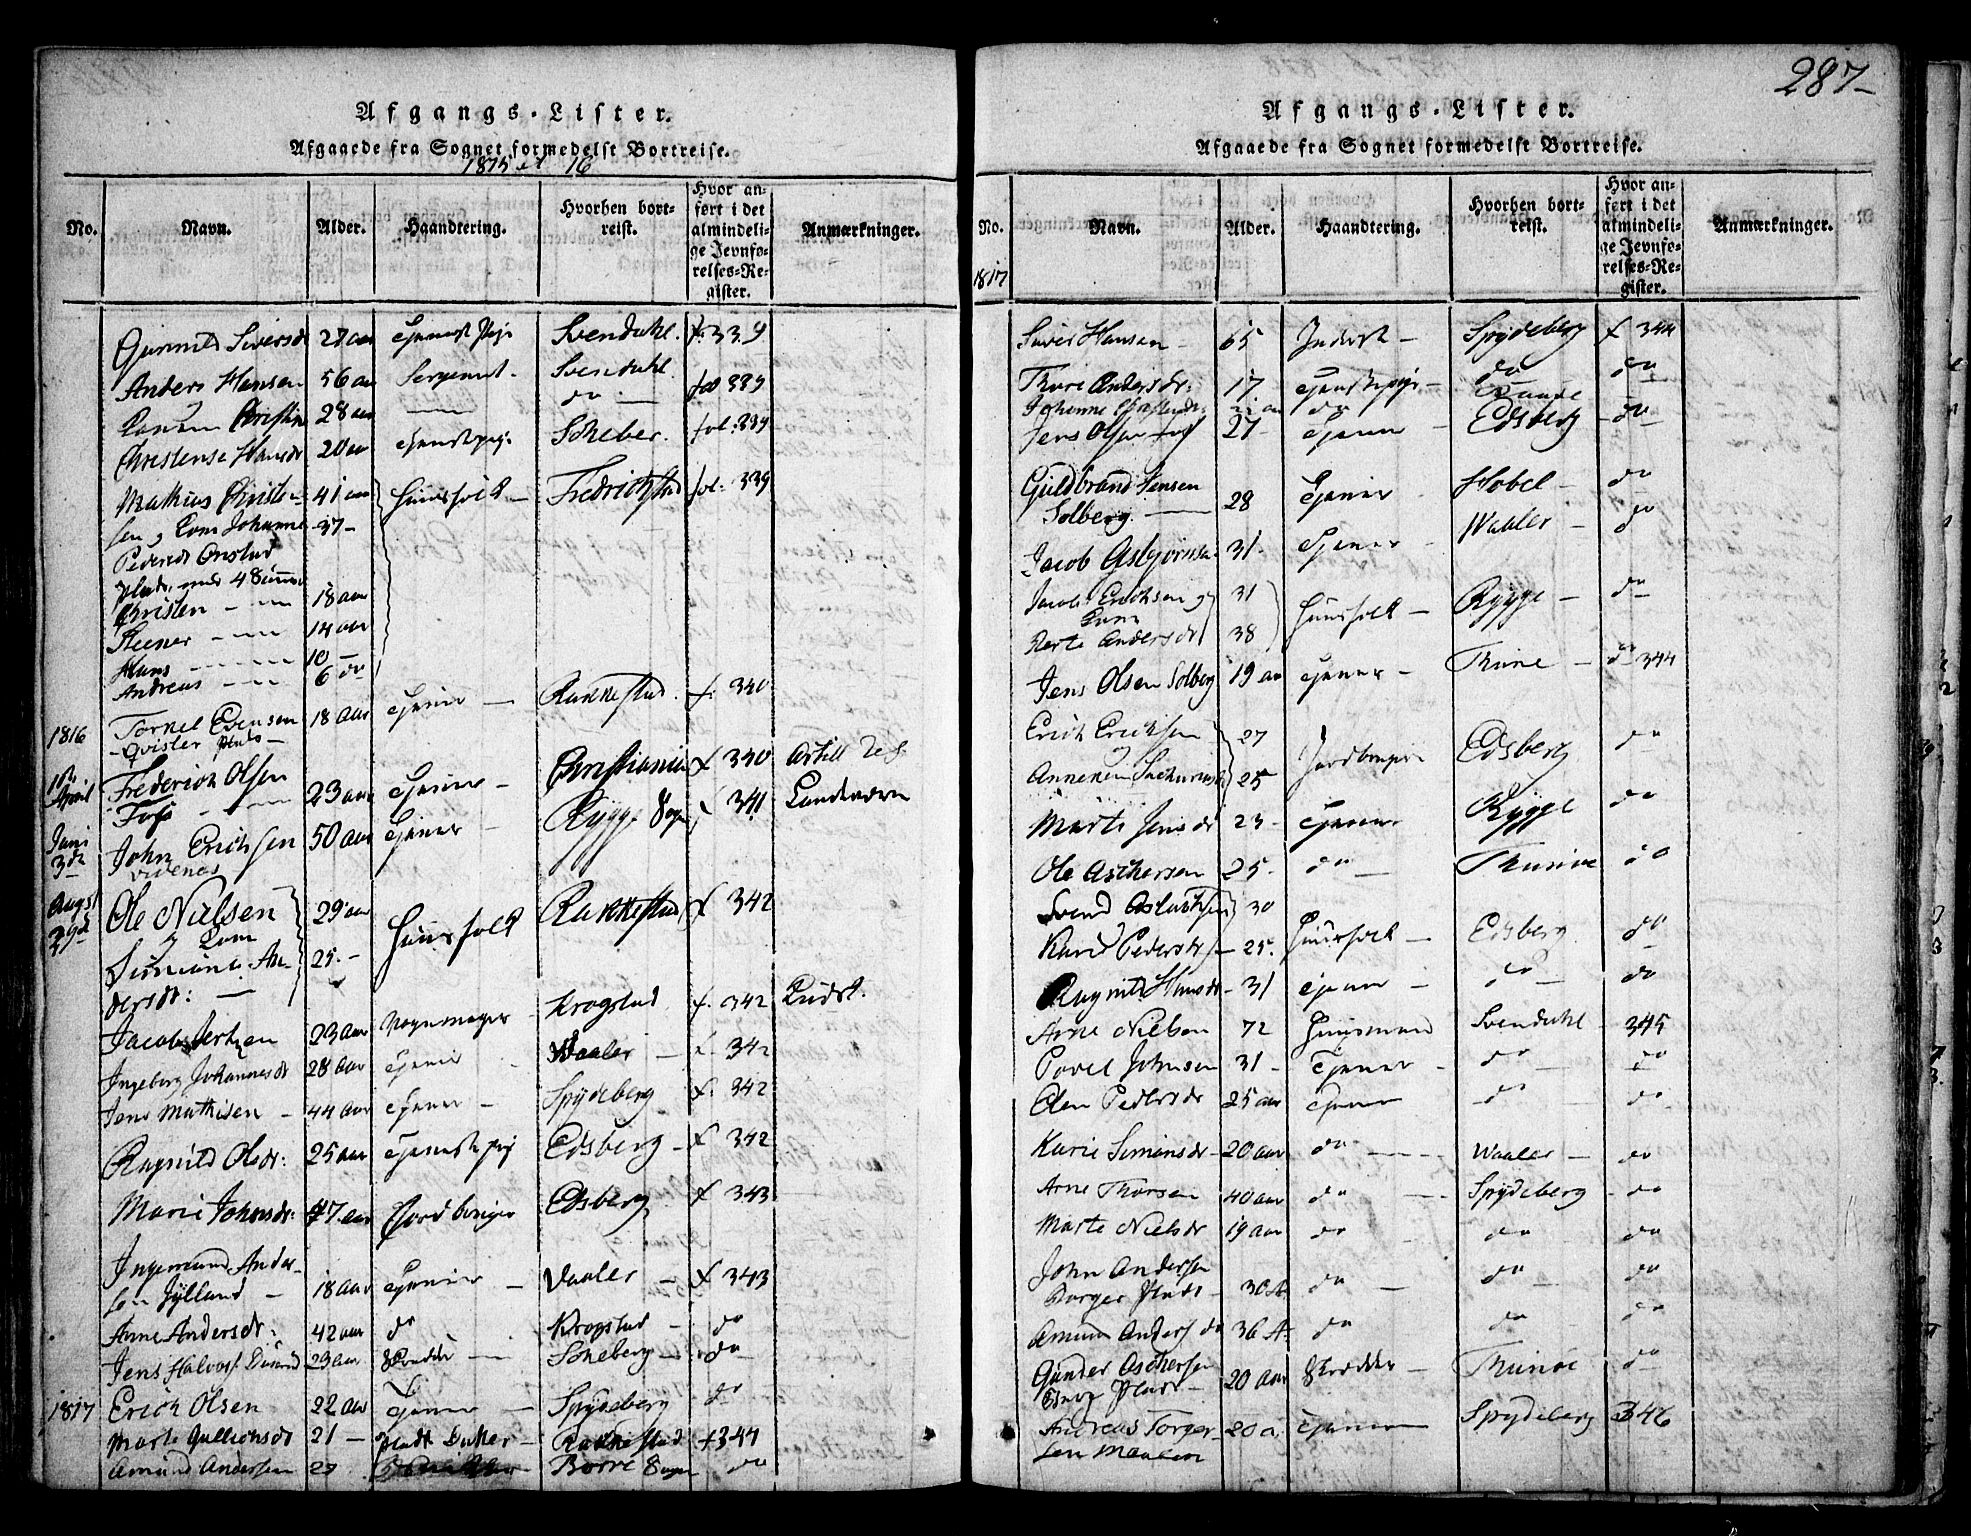 Afgangs-Lister.
Afgaaede fra Sognet formedelst Bortreise.
1815 et 16
No. Navn. Alder. Haandtering. Hvorhen bortreist. Hvor anført i det almindelige Jevnførelses-Register. Anmærkninger.
Gunnild Siversdr 27 aar Svendahl. f. 339
Anders Hansen 56 aar Sergeant Svendahl. fol 339
Christian 28 aar do
Christense Hansdr 20 aar fol: 339
Mathias Christen- 41 aar Huusfolk Fredrichstad fol: 339
sen og Kone Johanne 37-
Pedersdr Onstad
Plads, med 4 Sønner
Christen 18 aar
Steener 14 aar
Hans 10
Andreas 6 do
1816 Tornel Evensen 18 aar Tjener Rakkestad. f. 340
Qvister Plads
April Frederich Olsen 23 aar Tjener Christiania f 340 Artill
Foss
Juni 3de John Erichsen 50 aar Tjener Rygge Sogn f 341 Landeværn
Augst Ole Nielsen 29 aar Huusfolk Rakkestad f 342
og Kone
Simine An- 25.-
dersdr:
Jacob 23 aar Krogstad f. 342
Ingeborg Johannesdr 28 aar Tjener Waaler f. 342
Jens Mathisen 44 aar Tjener Spydeberg f. 342
Ragnild Olsdr: 25 aar Tjenestepig Edsberg f 342
Marie Johnsdr: 47 aar Jordbruger Edsberg f 343
Ingemund Ander-
sen Jylland 18 aar Tjener Vaaler f 343
Anne Andersdr: 42 aar do Krogstad do
Jens Halvors 23 aar Skrædder do
1817 Erich Olsen 22 aar Tjener Spydeberg do
Marte Gullichsdr 21 Rakkestad f 344
Amund Andersen Borre Sogn do
287
Afgangs-Lister.
Afgaaede fra Sognet formedelst Bortreise.
No. Navn. Alder. Haandtering. Hvorhen bortreist. Hvor anført i det almindelige Jevnførelses-Register. Anmærkninger.
1817
Siver Hansen 65 Inderst Spydeberg f 344
Thore Andersdr: 17 Tjenestepige do do
Johanne do Raade
Jens Olsen 27 Tjener Edsberg do
Guldbrand Jensen
Solberg 28 Tjener Hobel do
Jacob Asbjørnsen 31. Tjener Waaler do
Jacob Erichsen og 31 Huusfolk Rygge do
Kone
Berte Andersdr 38
Jens Olsen Solberg 19 aar Tjener Thune do 344
Erich Erichsen 27 Jordbruger Edsberg do
og
Anneken 25
Marte Jensdr 23 Tjener Rygge do
Ole Aschersen 25. do Thunøe do
Svend 30
Kari Pedersdr 25. Huusfolk Edsberg do
Ragnild Hansdr 31 Tjener do do
Arne Nielsen 72 Huusmand Svendahl 345
Povel Johnsen 31 Tjener do do
Elen Pedersdr 25 aar Tjener do do
Karie Simensdr 20 aar do Waaler do
Arne Thorsen 40 aar do Spydeberg do
Marte Nielsdr 19 aar do do do
John Andersen
Borger Plads 30 A do do do
Amund Anders 36 A. do do do
Gunder Aschersen
Plads 20 aar Skrædder Thunøe do
Andreas Torger- 20 a. Tjener Spydeberg 346
sen